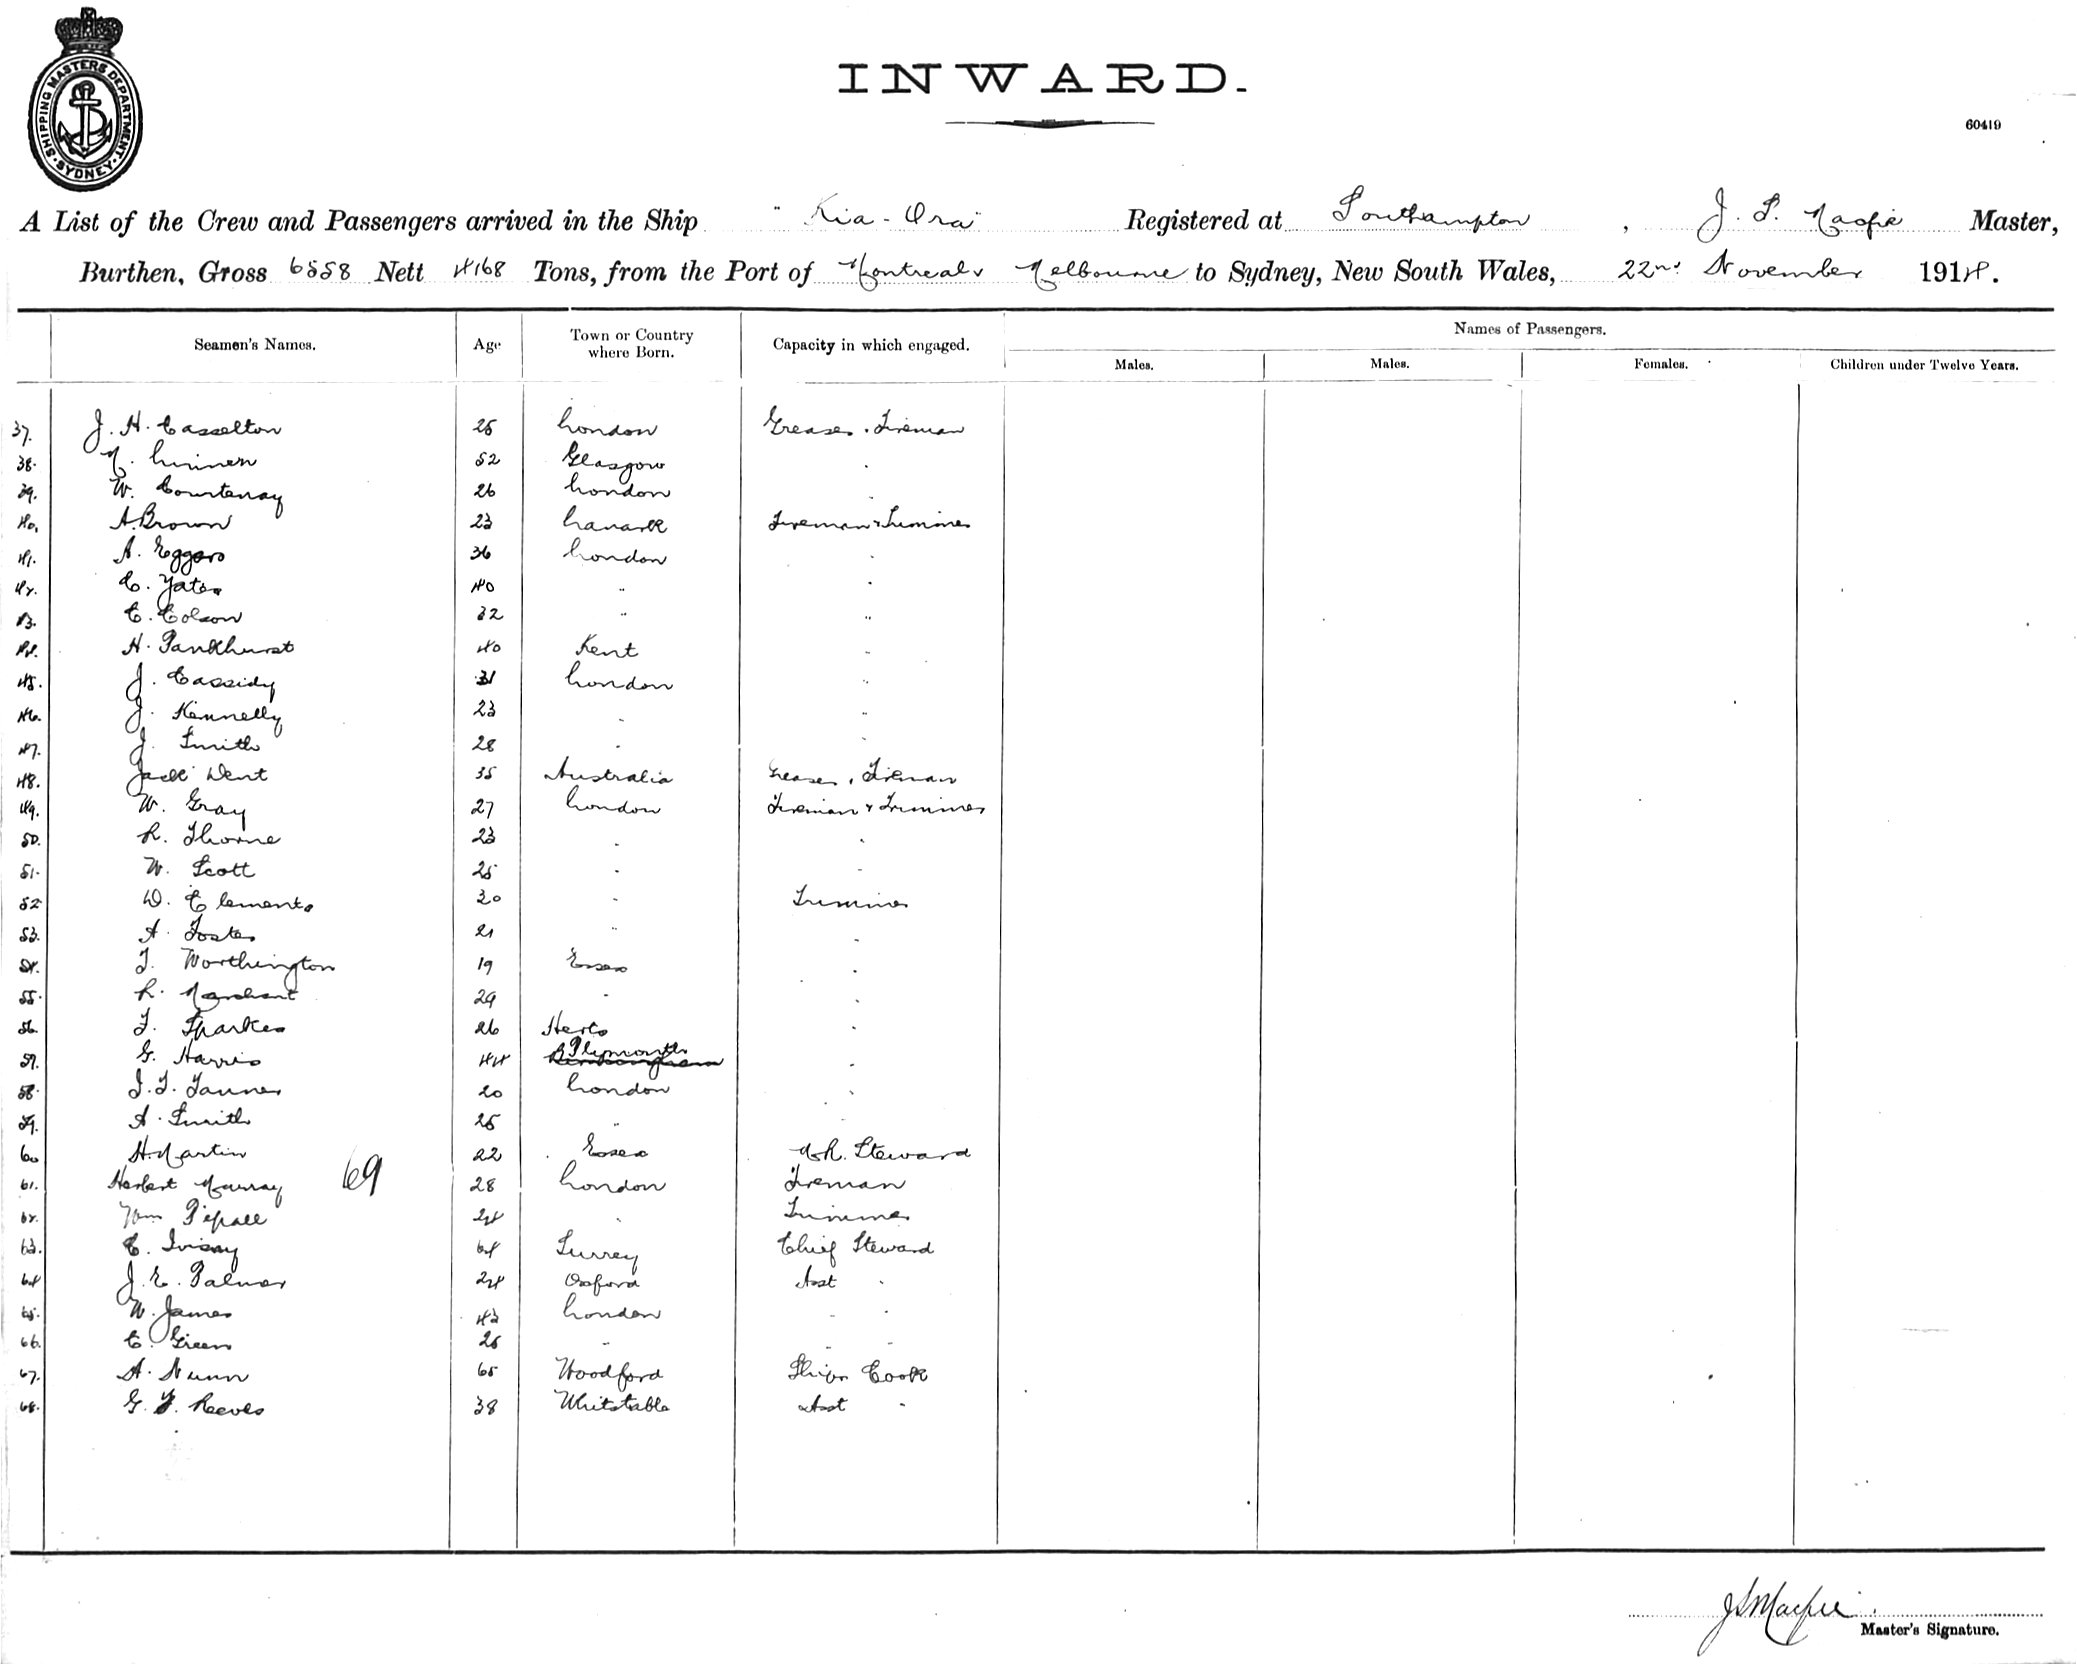 SHIPPING MASTERS DEPARTMENT · SYDNEY ·
INWARD.
60419
A List of the Crew and Passengers arrived in the Ship "Kia-Ora" Registered at Southampton, J. S. Macfie Master,
Burthen, Gross 6558 Nett 4168 Tons, from the Port of Montreal & Melbourne to Sydney, New South Wales, 22nd November 1914.
Seamen's Names. Age Town or Country where Born. Capacity in which engaged. Names of Passengers.
Males. Males. Females. Children under Twelve Years.
37. J. H. Casselton 25 London Greaser & Fireman
38. 52 Glasgow "
39. W. Courtenay 26 London "
40. A. Brown 23 Lanark Fireman & Trimmer
41. A. Eggers 36 London "
42. C. Yates 40 " "
43. C. Colson 32 " "
44. H. Pankhurst 40 Kent "
45. J. Cassidy 31 London "
46. J. Kennelly 23 " "
47. J. Smith 28 " "
48. Jack Dent 35 Australia Greaser & Fireman
49. W. Gray 27 London Fireman & Trimmer
50. R. Thorne 23 " "
51. W. Scott 25 " "
52. D. Clements 30 " Trimmer
53. A. Foster 21 " "
54. T. Worthington 19 Essex "
55. R. Marchant 29 " "
56. F. Sparkes 26 Herts "
57. G. Harris 44 Plymouth "
58. J. T. Tanner 20 London "
59. A. Smith 25 " "
60 H. Martin 22 Essex M.R. Steward
61. Herbert Murray 69 28 London Fireman
62. Wm 24 " Trimmer
63. C. 64 Surrey Chief Steward
64 J. E. Palmer 24 Oxford Asst "
65. W. James 43 London " "
66. C. Green 25 " " "
67. A. Nunn 65 Woodford Ships Cook
68. G. F. Reeves 38 Whitstable Asst "
J S Macfie
Master's Signature.